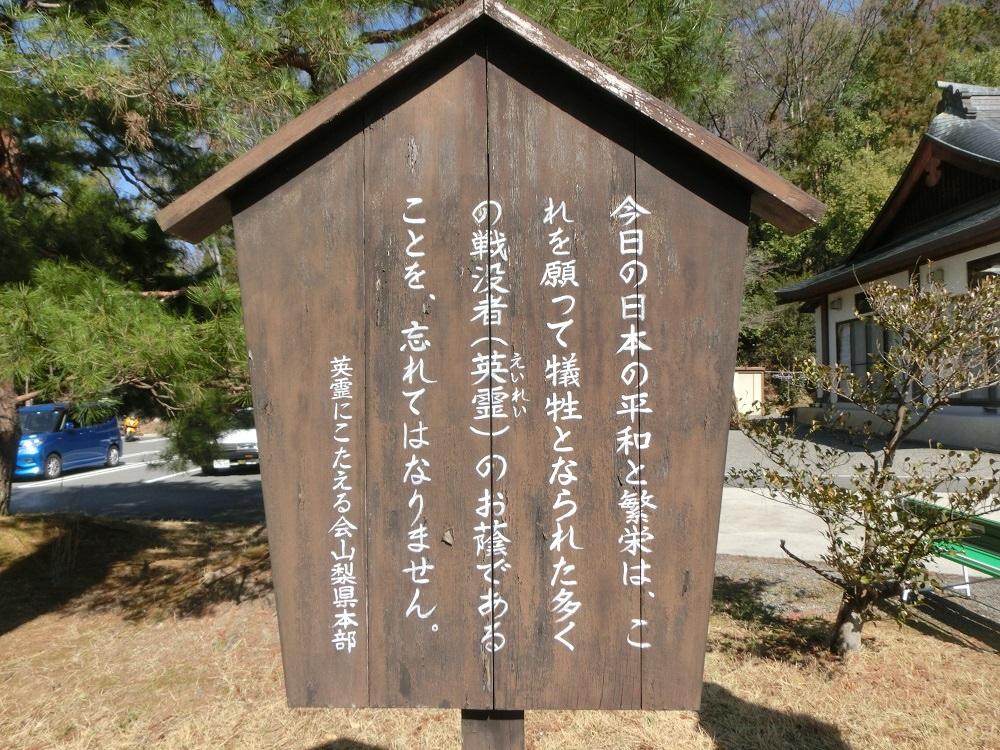 今日の日本の平和と繁栄は、こ
れを願って犠牲となられた多く
の戦没者(英霊)のお蔭である
えいれい
ことを、忘れてはなりません。
英霊にこたえる会山梨県本部